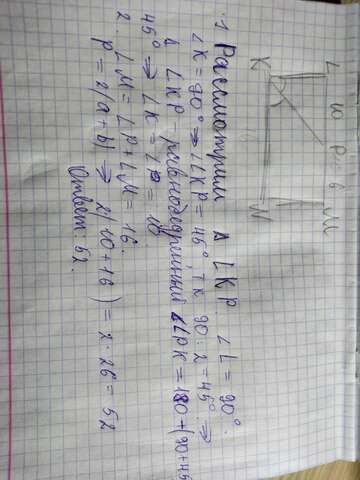 L 10 P 6 M
K N
1 Рассмотрим △ LKP. ∠L = 90°.
∠K = 90° ⇒ ∠LKP = 45°, тк 90 : 2 = 45° ⇒
∆ LKP – равнобедренный ∠LPK = 180 + (90+45
45° ⇒ LK = LP = 10
2. LM = LP + LM = 16.
P = 2(a+b) ⇒ 2(10+16) = 2 · 26 = 52
Ответ: 52.